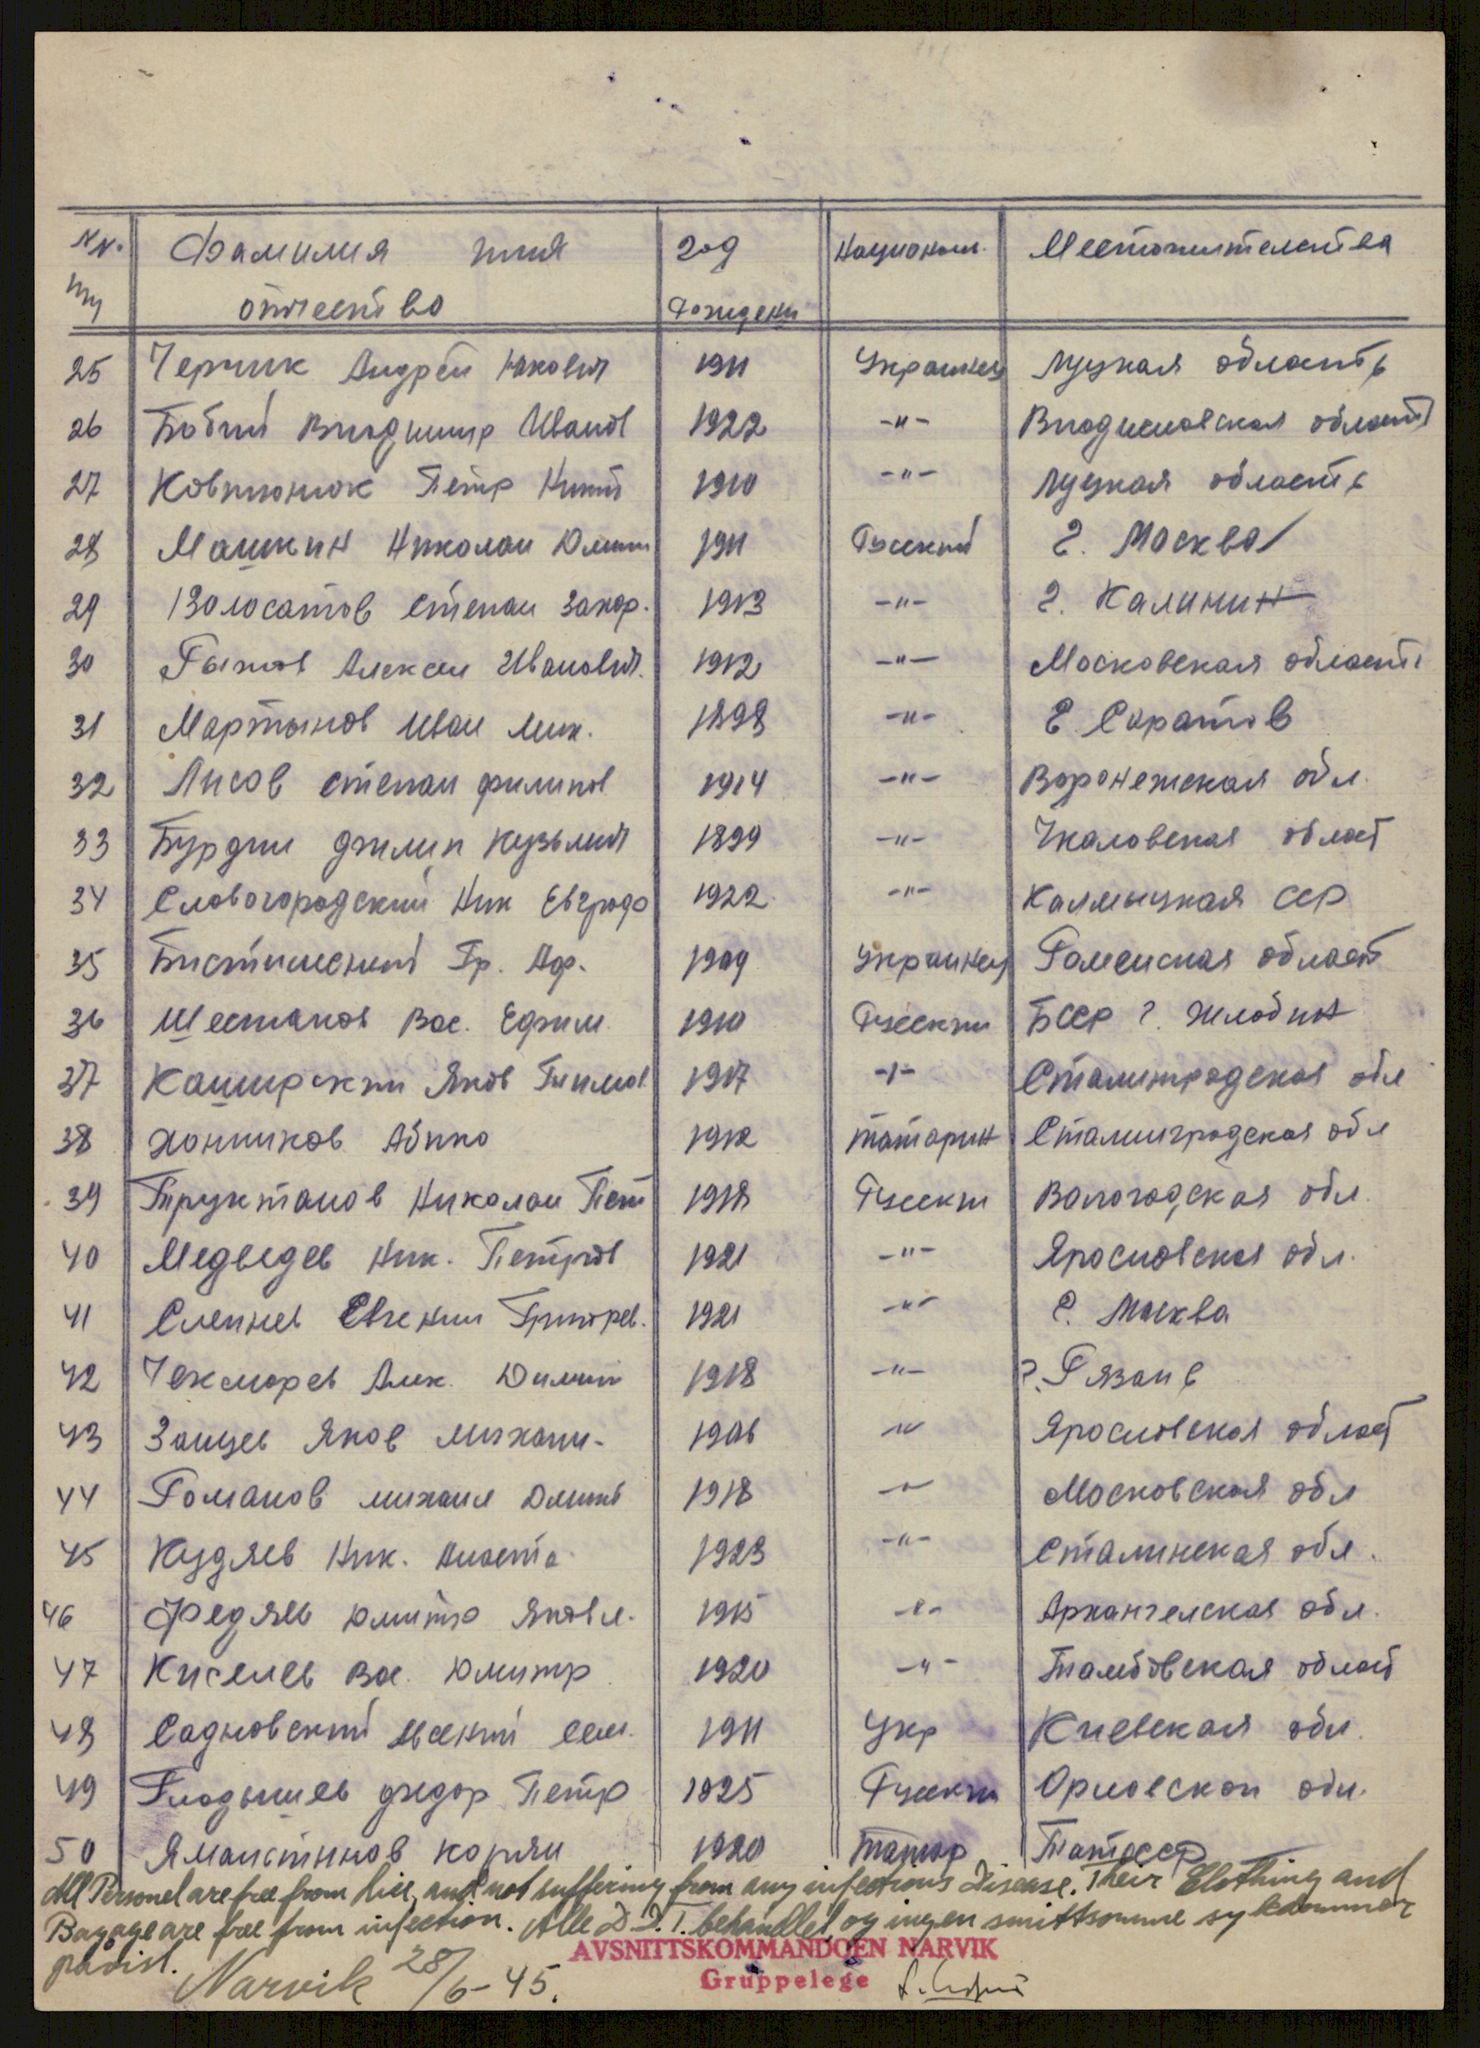 NN. Фамилия имя год Национал. Местожителства
п/п отчество рождени
25 Черчик Андрей Якович 1911 Украинец Луцкая область
26 Бобий Владимир Иванов 1922 -"- Владиславская област
27 Ковтонюк Петр Никит 1910 -"- Луцкая область
28 Машкин Николаи Дмит 1911 Русский г. Москва
29 Волосатов Степан Захар. 1913 -"- г. Калинин
30 Рыжов Алексеи Иванович. 1912 -"- Московская област
31 Мартынов Иван Мих. 1898 -"- г Саратов
32 Лисов Степан Филипов 1914 -"- Воронежская обл.
33 Бурдин Филип Кузьмич 1899 -"- Чкаловская област
34 Словогородский Ник Евграф 1922 -"- Калмыцкая ССР
35 Гр. Аф. 1909 Украинец Роменская област
36 Шестаков Вас. Ефим. 1910 Русскии БССР г. Жлобин
37 Каширскии Яков Тимов 1917 -"- Сталинградская обл
38 Хонников Абико 1912 татарин Сталинградская обл
39 Труктанов Николаи Пет 1918 Русскии Вологодская обл.
40 Медведев Ник. Петров 1921 -"- Ярославская обл.
41 Слепнев Евгении Григорев. 1921 -"- г. Москва
42 Чекмарев Алек. Димит 1918 -"- г. Рязань
43 Заицев Яков Михаил- 1906 -"- Ярославская област
44 Романов Михаил Дмит 1918 -"- Московская обл
45 Кудяев Ник. 1923 -"- Сталинская обл.
46 Федяев Дмитр Яковл. 1915 -"- Архангелская обл.
47 Киселев Вас. Дмитр 1920 -"- Тамбовская област
48 Садновский Сем. 1911 Укр Киевская обл.
49 Гладышев Федор Петр 1925 Русскии Орловскои обл.
50 Ямалстинов Карям 1920 татар Татасср
All Personel are free from lice, and not suffering from any infectious Disease. Their Clothing and
Bagage are free from infection. Alle D.D.T. behandlet og ingen smittsomme sykdommer
påvist.
AVSNITTSKOMMANDOEN NARVIK
Narvik 28/6-45. Gruppelege